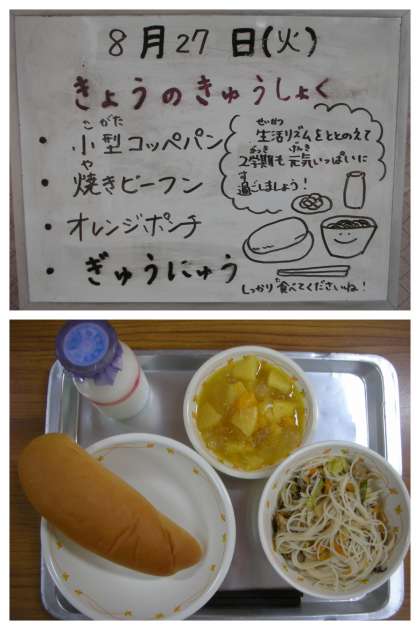 8月27日(火)
きょうのきゅうしょく
・小型コッペパン
こがた
・焼きビーフン
や
・オレンジポンチ
・ぎゅうにゅう
生活リズムをととのえて
せいかつ
2学期も元気いっぱいに
がっき げんき
過ごしましょう!
す
しっかり食べてくださいね!
た